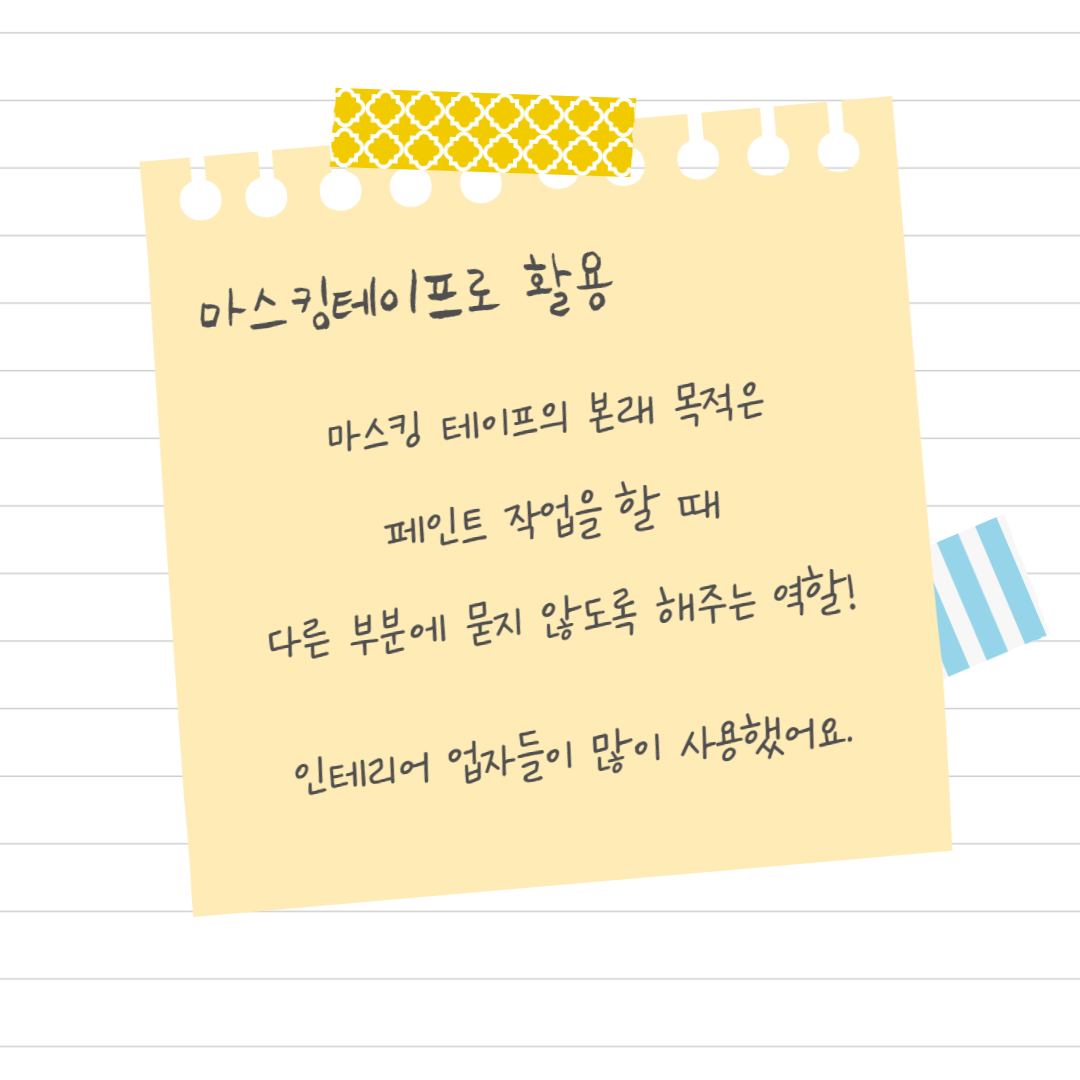 마스킹테이프로 활용
마스킹 테이프의 본래 목적은
페인트 작업을 할 때
다른 부분에 묻지 않도록 해주는 역할!
인테리어 업자들이 많이 사용했어요.